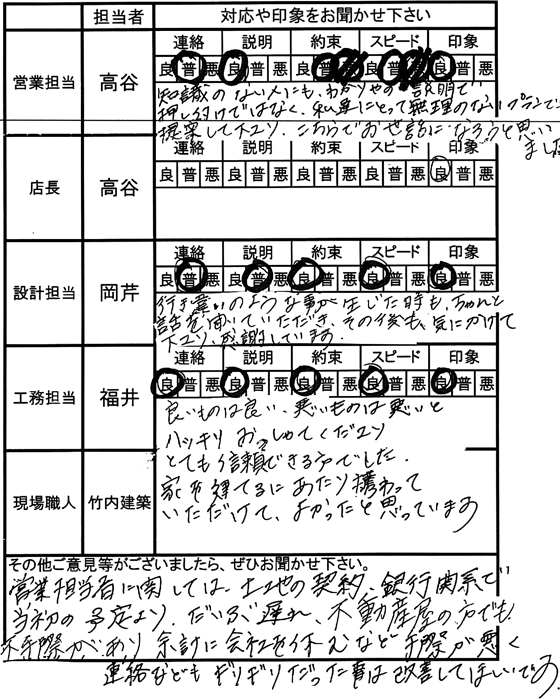 担当者 対応や印象をお聞かせ下さい
連絡 説明 約束 スピード 印象
営業担当 高谷 良 普 悪 良 普 悪 良 普 悪 良 普 悪 良 普 悪
知識のない人にも、わかりやすい説明で
押し付けではなく、私達にとって無理のないプランで
提案して下さり、こちらでお世話になろうと思い
ました
連絡 説明 約束 スピード 印象
店長 高谷 良 普 悪 良 普 悪 良 普 悪 良 普 悪 良 普 悪
連絡 説明 約束 スピード 印象
設計担当 岡芹 良 普 悪 良 普 悪 良 普 悪 良 普 悪 良 普 悪
行き違いのような事が生じた時も、ちゃんと
話を聞いていただき、その後も、気にかけて
下さり、感謝しています。
連絡 説明 約束 スピード 印象
工務担当 福井 良 普 悪 良 普 悪 良 普 悪 良 普 悪 良 普 悪
良いものは良い、悪いものは悪いと
ハッキリおっしゃてくださり
とても信頼できる方でした。
現場職人 竹内建築
家を建てるにあたり携わって
いただけて、よかったと思っています
その他ご意見等がございましたら、ぜひお聞かせ下さい。
営業担当者に関しては、土地の契約、銀行関係で
当初の予定より、だいぶ遅れ、不動産屋の方でも
不手際があり余計に会社を休むなど手際が悪く
連絡などもギリギリだった事は改善してほしいです。